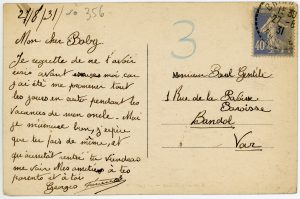 27/8/31
no 356
Mon cher Baby
Je regrette de ne t'avoir
écris avant moi car
j'ai été me promener tout
les jours en auto pendant les
vacances de mon oncle. Moi
je m'amuse bien, j'espère
que tu fais de même, et
qu'aussitôt rentré tu viendras
me voir Mes amitiés à tes
parents et à toi
Georges
3
Monsieur Paul Gentile
1 Rue de la Paroisse
Bandol
Var
40
31